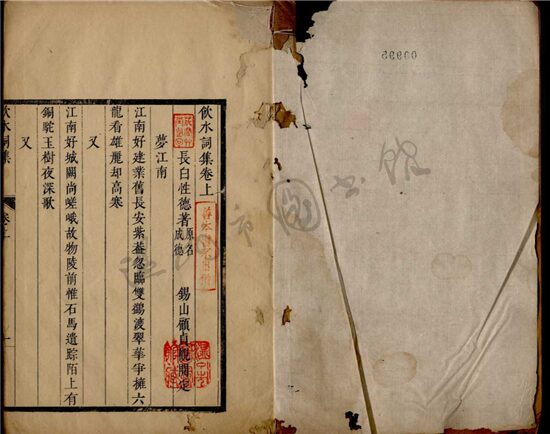 飲水詞集卷上
長白性德著 原名成德 錫山顧貞觀閱定
夢江南
江南好建業舊長安紫葢忽臨雙鷁渡翠華爭擁六
龍看雄麗却高寒
又
江南好城闕尚嵯峨故物陵前惟石馬遺踪陌上有
銅駝玉樹夜深歌
又
飲水詞集 卷上 一